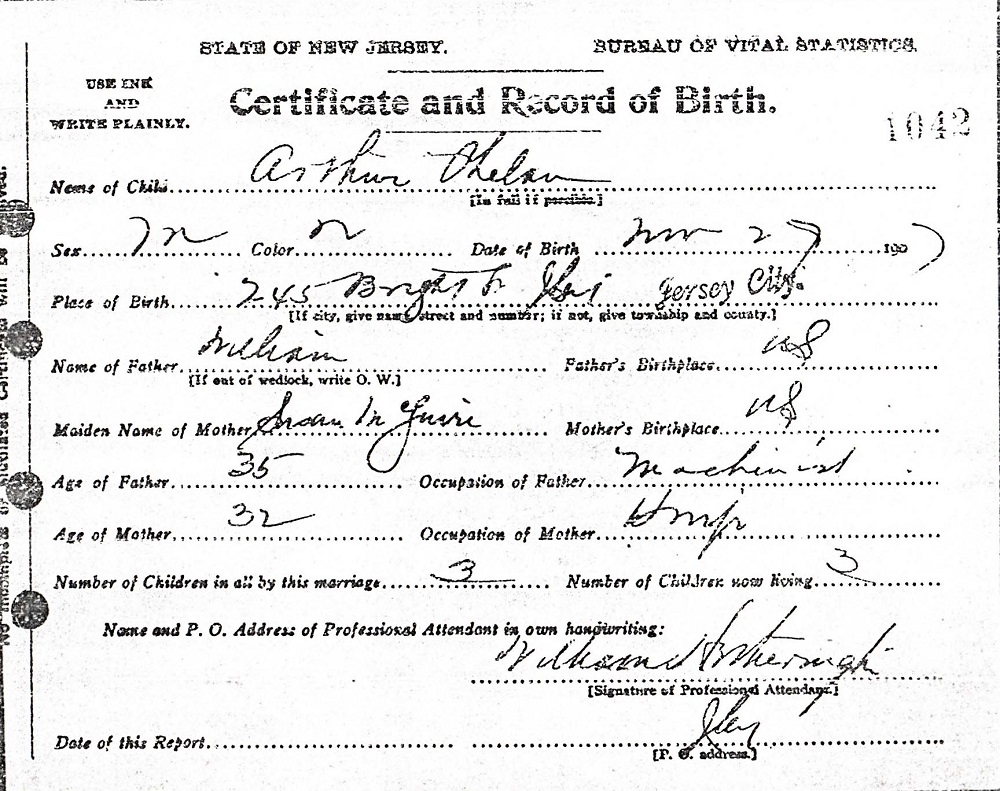 STATE OF NEW JERSEY. BUREAU OF VITAL STATISTICS.
USE INK AND WRITE PLAINLY.
Certificate and Record of Birth.
1042
Name of Child Arthur Thelan
[In full if possible.]
Sex M Color W Date of Birth Nov 27 1907
Place of Birth 245 Bright St Jersey City.
[If city, give name, street and number; if not, give township and county.]
Name of Father William Father's Birthplace US
[If out of wedlock, write O. W.]
Maiden Name of Mother Susan McGuire Mother's Birthplace US
Age of Father 35 Occupation of Father Machinist
Age of Mother 32 Occupation of Mother
Number of Children in all by this marriage 3 Number of Children now living 3
Name and P. O. Address of Professional Attendant in own handwriting:
William
[Signature of Professional Attendant.]
Date of this Report
[P. O. address.]